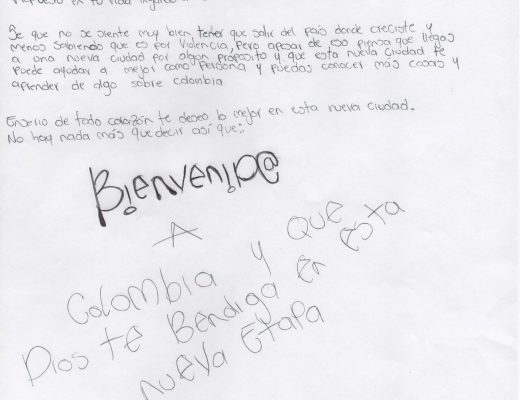 en tu vida
Se que no se siente muy bien tener que salir del país donde creciste y
menos sabiendo que es por violencia, pero apesar de eso piensa que llegas
a una nueva ciudad por algún proposito y que esta nueva ciudad te
puede ayudar a mejor como persona y puedas conocer más cosas y
aprender de algo sobre colombia
Enserio de todo corazón te deseo lo mejor en esta nueva ciudad.
No hay nada más que decir así que:
Bienvenid@
A
Colombia y que
Dios te Bendiga en esta
nueva Etapa